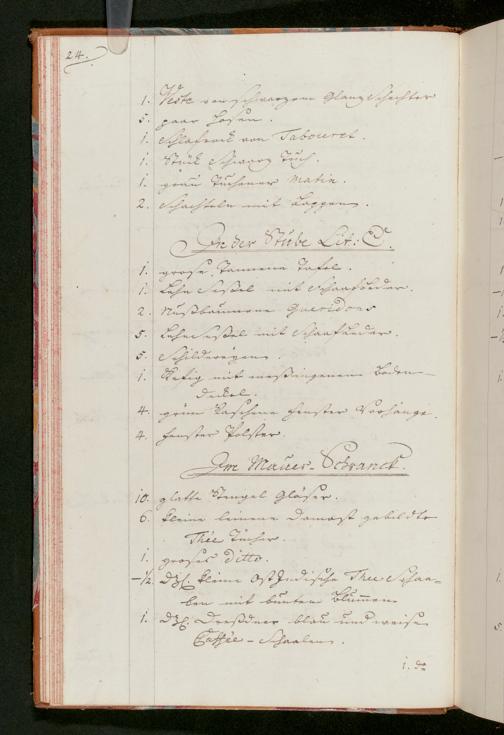 24.
1. Veste von schwarzem Glanz Schechter
5. paar Hosen.
1. Schlafrock von Tabouret.
1. Stück Schwarz Tuch.
1. grau Tuchener Matin.
2. Schachteln mit Lappen.
In der Stube Lit: C.
1. grose Tannene Tafel.
1. Lehn Seßel mit Schaafleder.
2. Nußbaumene Gueridons
5. Lehn Seßel mit Schaafleder.
5. Schildereyen.
1. Kefig mit meßingenem Boden-
deckel.
4. grün Raschene Fenster Vorhänge.
4. Fenster Polster.
Im Mauer-Schranck.
10. glatte Stengel Gläser.
6. kleine leinene Damast gebildte
Thée Tücher.
1. groses ditto.
-½ dzt. kleine OstIndische Thee Schaa-
len mit bunten Blummen
1. dzt. Dresdner blau und weise
Caffée-Schaalen.
1. do